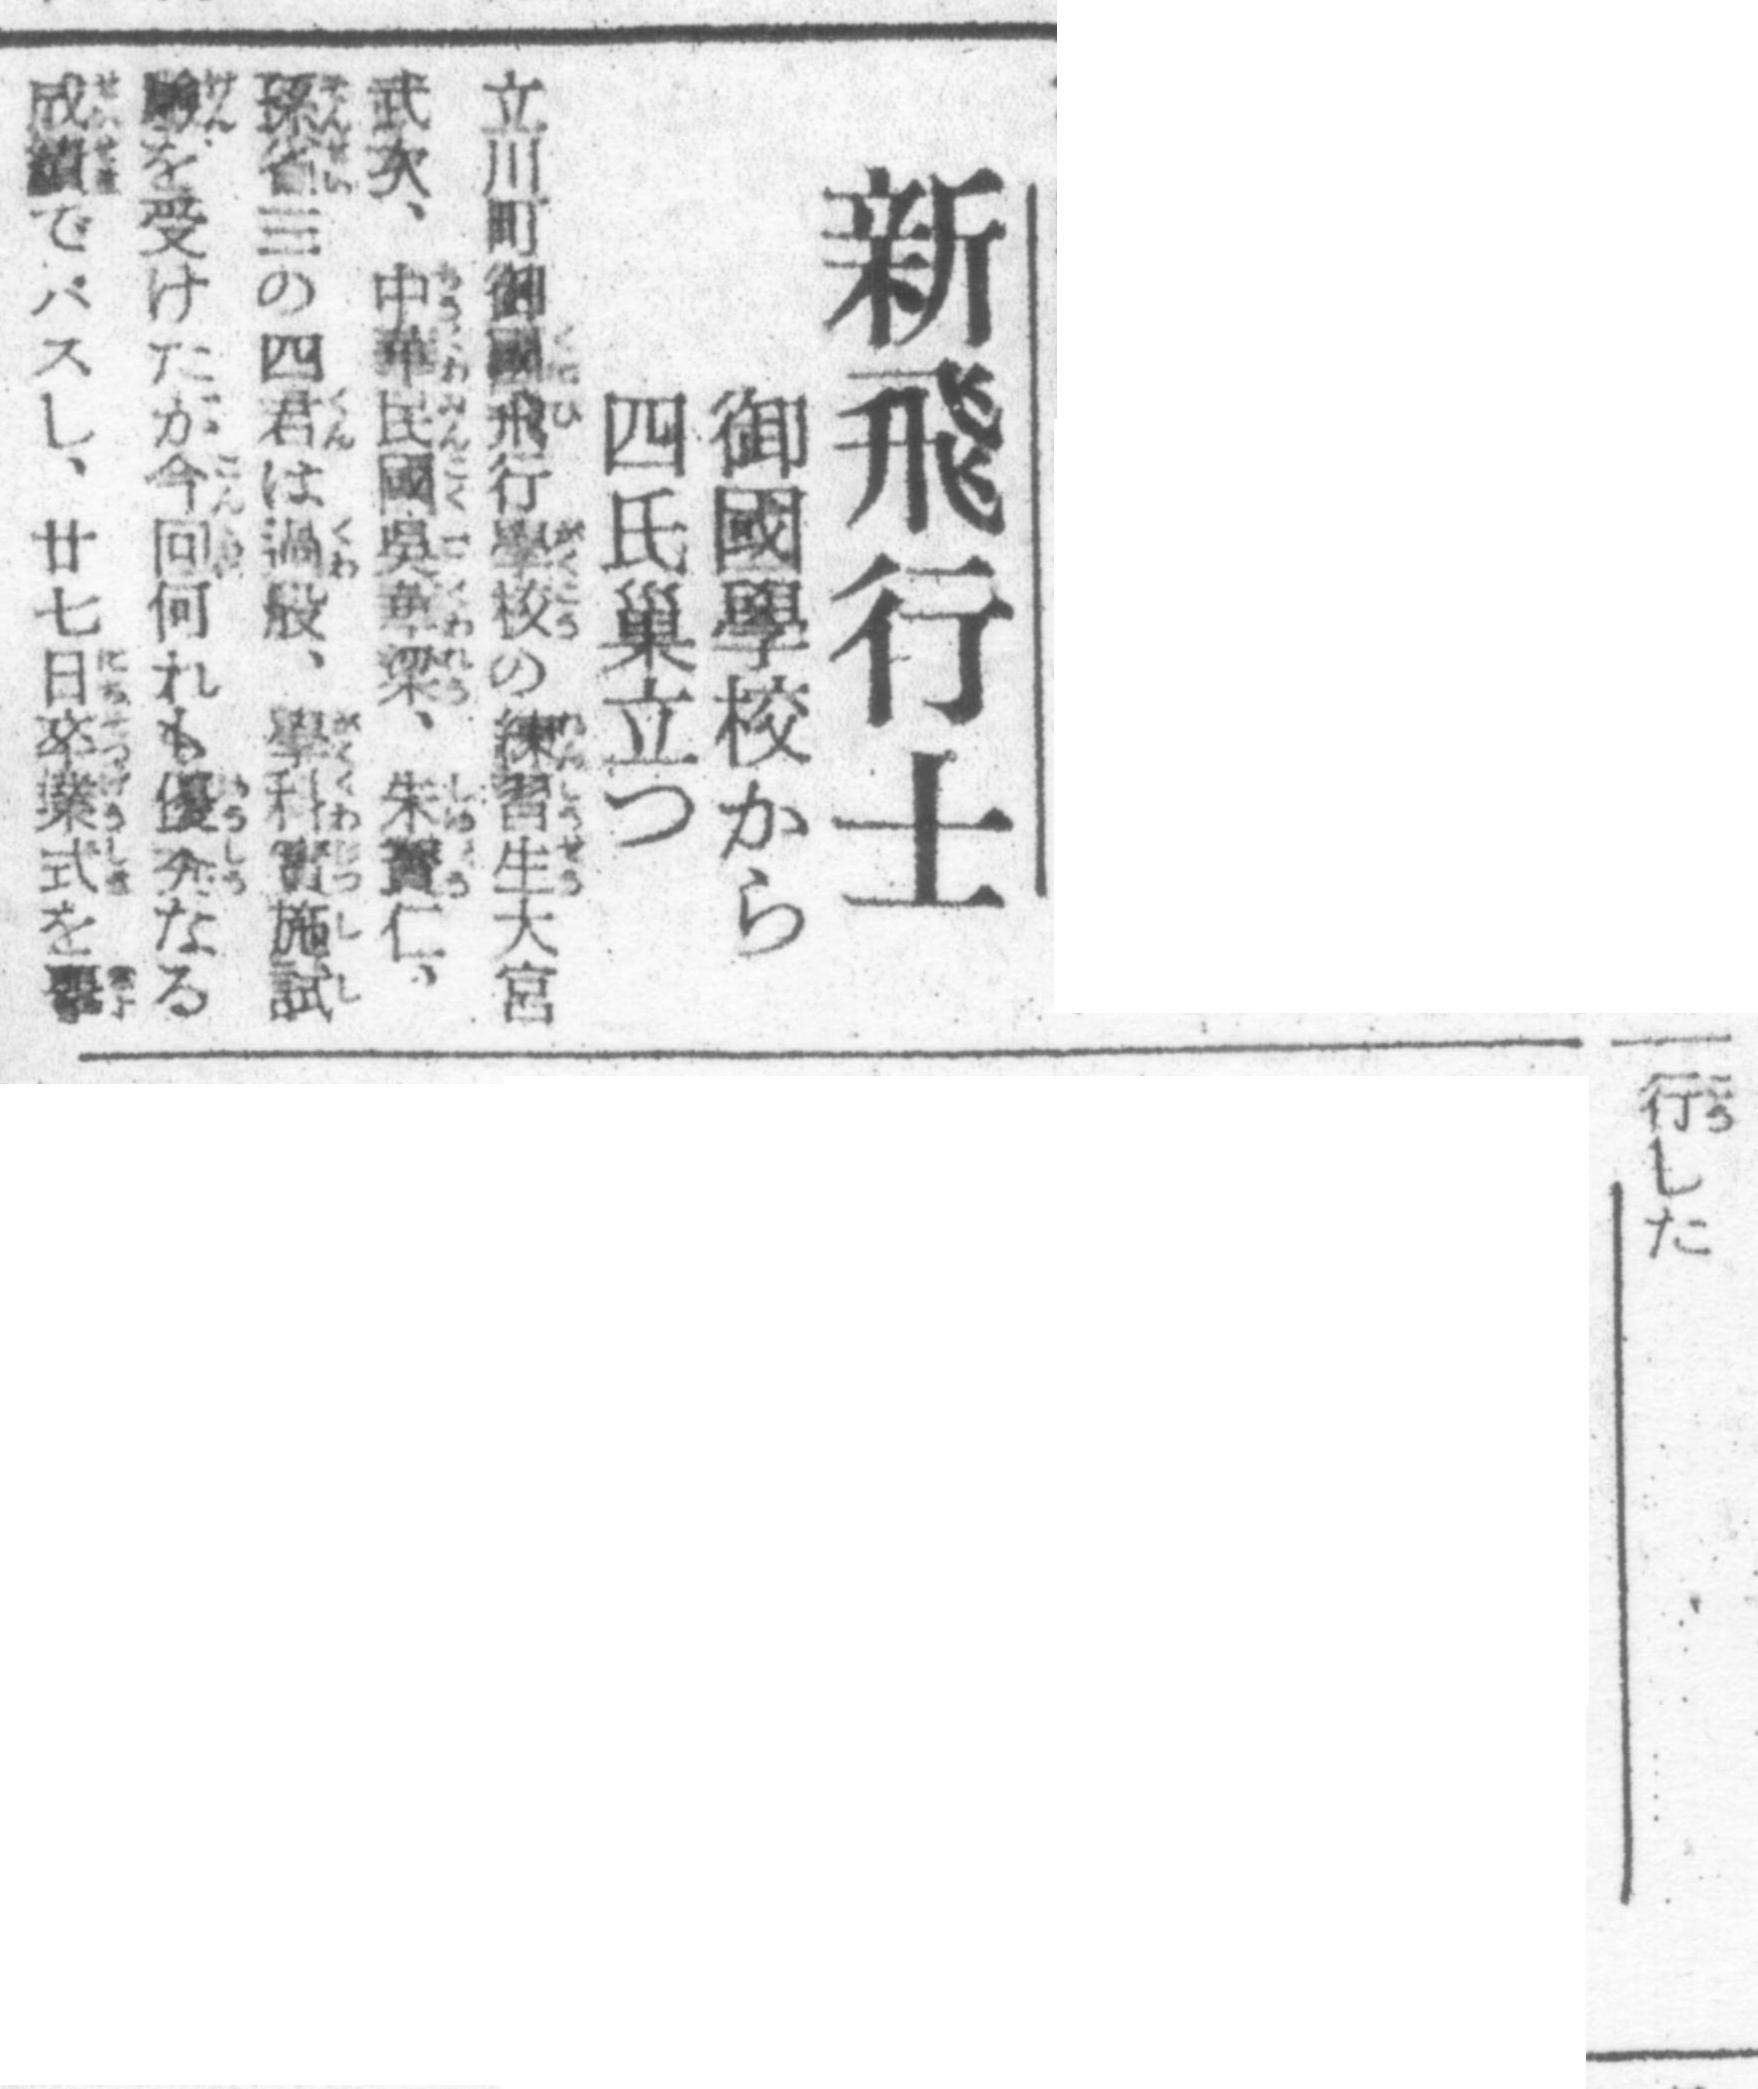 新飛行士
御國學校から
四氏巢立つ
立川町御國飛行學校の練習生大宮
武次、中華民國吳華梁、朱賢仁、
孫省三の四君は過般、學科實施試
驗を受けたが今回何れも優秀なる
成績でパスし、廿七日卒業式を擧
行した